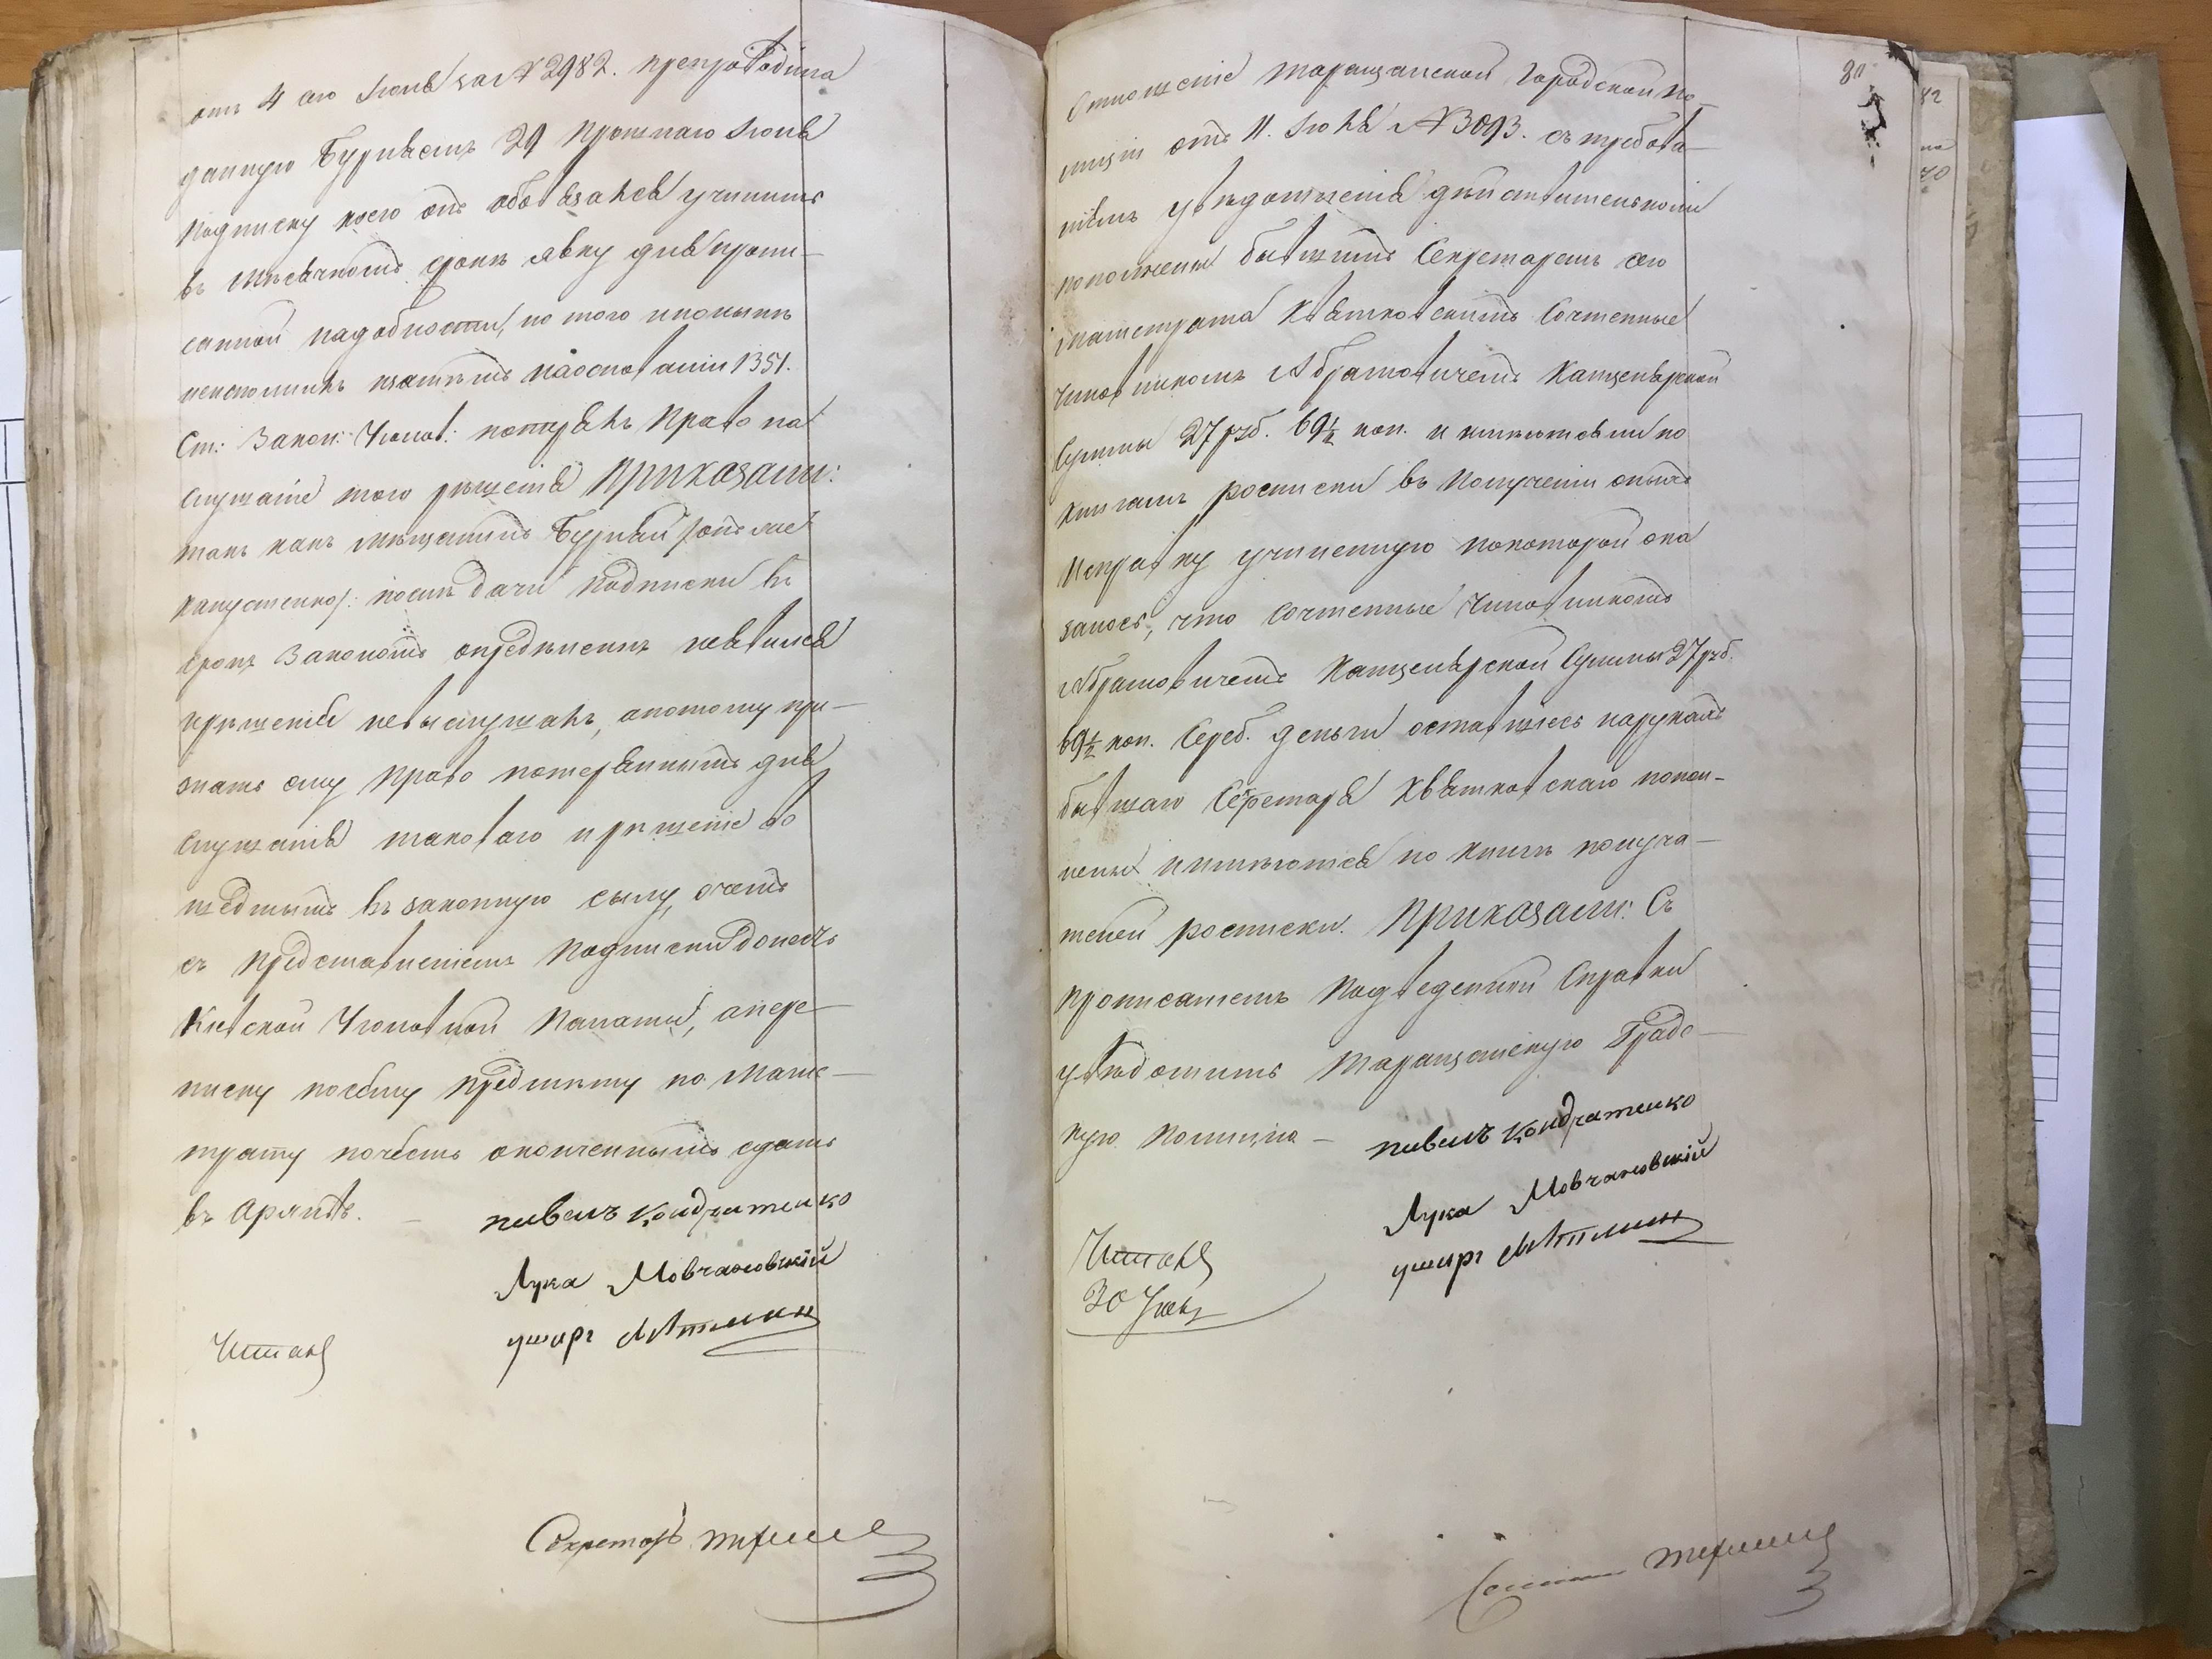 отъ 4 сего Іюня за № 2982. препроводила
данную Бурнѣемъ 29 прошлаго Іюня
подписку коею онъ обовязался учинить
въ мѣсячномъ срокѣ явку для пропи-
санной надобности, но того и понынѣ
неисполнилъ затѣмъ наосновании 1351.
Ст: Закон: Угонов: потерялъ право на
слушаніе того рѣшенія Приказали:
такъ какъ мѣщанинъ Бурнѣй
послѣ дачи подписки въ
срокъ Закономъ опредѣленъ неявился
и рѣшенія невыслушалъ, а потому при-
знать ему право потеряннымъ для
слушанія таковаго и рѣшеніе во
шедшимъ въ законную силу, очемъ
съ представленіемъ подписки донесть
Кіевской Уголовной Палаты, а пере-
писку посему предмѣту по Маги-
страту почесть оконченнымъ сдать
въ Архивъ. — Павелъ Кондратенко
Лука Мовчановскій
Читалъ
Секретарь
Отношеніе Таращанской Городской По-
лиціи отъ 11. Іюля № 3093. съ требова-
ніемъ увѣдомленія дѣйствительноли
пополнены бывшимъ Секретаремъ сего
Магистрата Квятковскимъ Сочтенные
Чиновникомъ Абрамовичемъ Канцелярской
Суммы 27 руб. 69½ коп. и имѣютсяли по
книгамъ росписки въ полученіи оныхъ
Исправку учиненную покоторой ока
залось, что Сочтенные Чиновникомъ
Абрамовичемъ Канцелярской Суммы 27 руб.
69½ коп. Сереб. деньги оставшіесь нарукахъ
бывшаго Секретаря Квятковскаго попол-
нены и имѣются по книгѣ получа-
телей росписки. Приказали: Съ
прописаніемъ Подведенной Справки
увѣдомить Таращанскую Градс-
кую Полицію — Павелъ Кондратенко
Лука Мовчановскій
Читалъ
30